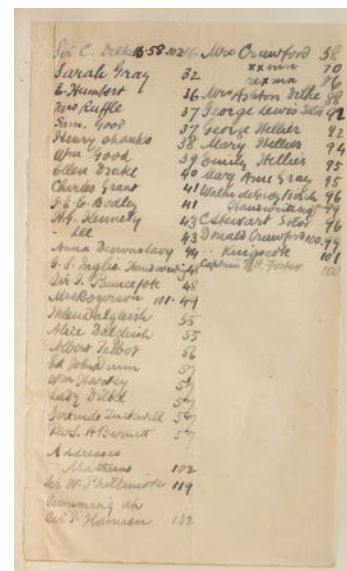 Sir C. Dilke 16·58·102·16
Sarah Gray 32
E. Humbert 36
Mrs Ruffle 37
Sam. Good 37
Henry Shanks 38
Wm Good 39
Ellen Drake 40
Charles Grant 41
J. E. C. Bodley 41
H. G. Kennedy 43
- Lee 43
Anna 44
G. S. Inglis. Handwriting 48
Sir J. Pauncefote 48
Mrs Rogerson 101-49
Helen Dalgleish 55
Alice Dalgleish 55
Albert Talbot 56
Ed John 57
Wm Harvey 57
Lady Dilke 57
Gertrude Tuckwell 57
Rev S. A Barnett 57
Addresses
Matthews 102
Sir W. Phillimore 119
Summing up
Sir J. Hannen 132
Mrs Crawford 58
xxmn 70
rexmn 86
Mrs Ashton Dilke 88
George Lewis Soltr 92
George Hellier 92
Mary Hellier 94
Emily Hellier 95
Mary Ann Gray 95
Walter de Gray Birch 96
Handwriting
C Stewart Soltr 96
Donald Crawford 100·99
- Kingscote 101
Captain Foster 100